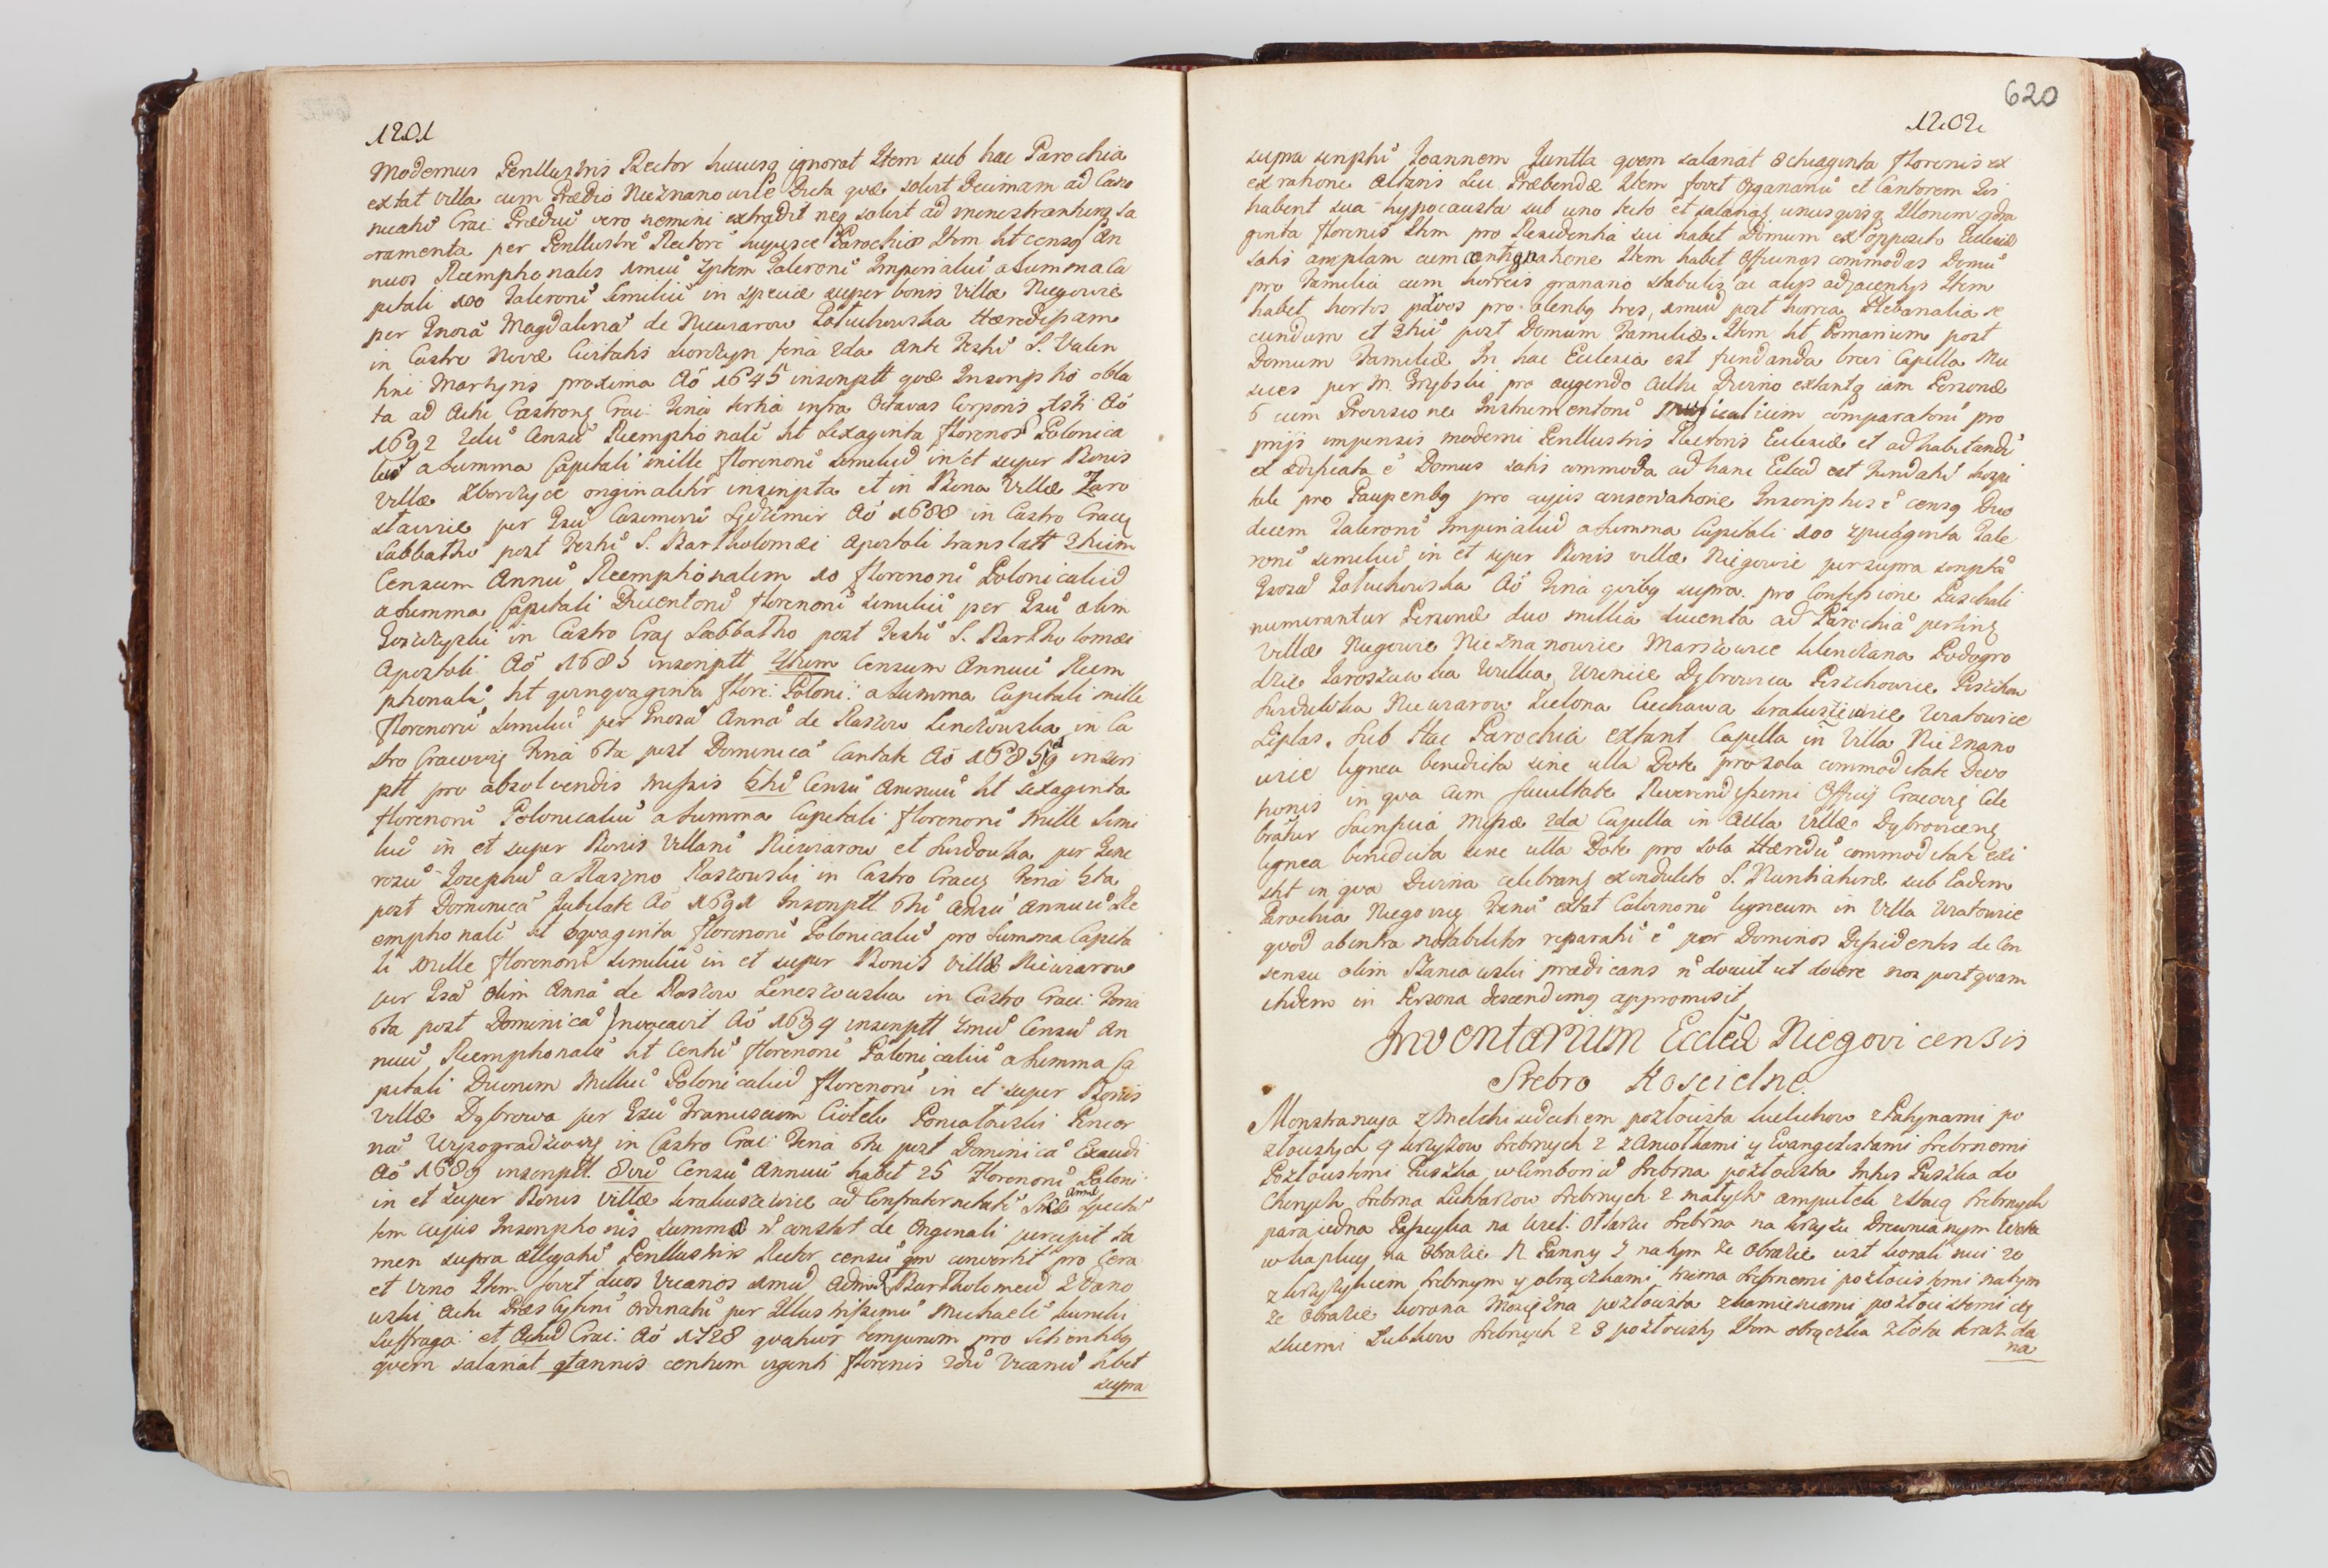 1201
Modernus Penllustris Rector huiusq ignorat Item sub hac Parochia
extat villa cum Prædio Nieznanowice Dicta quæ solvit Decimam ad Cano
nicatũ Crac: Prædiũ vero nemini extradit neq solvit ad ministrantium sa
cramenta per Penllustrẽ Rectorẽ hujusce Parochiæ Item ht censq An
nuos Reemptionales 1mũ 7ptem Taleronũ Imperialiũ a Summa Ca
pitali 100 Taleronũ similiũ in specie super bonis Villæ Niegowie
per Gnosã Magdalenã de Niewiarow Hæredissam
in Castro Novæ Civitatis Korczyn feria 2da Ante Festũ S. Valen
tini Martyris proxima Aõ 1645 inscriptt quæ Inscriptio obla
ta ad Acta Castrens Crac: Feria tertia infra Octavas Corporis Xsti Aõ
1692 2dũ Censũ Reemptionalẽ ht sexaginta florenos Polonica
les a Summa Capitali mille florenonũ similiũ in et super Bonis
Villæ Zborczyce originaliter inscripta et in Bona Villæ Zaro
stawice per Gsũ Casimirũ Sędzimir Aõ 1688 in Castro Cracq
Sabbatho post Festũ S. Bartholomæi Apostoli translatt 3tium
Censum Annũ Reemptionalem 10 florenonũ Polonicaliũ
a Summa Capitali Ducentonũ florenonũ similiũ per Gsũ olim
in Castro Cracq Sabbatho post Festũ S. Bartholomæi
Apostoli Aõ 1685 inscriptt 4tum Censum Annuũ Reem
ptionalẽ ht quinquaginta flore: Poloni: a Summa Capitali mille
florenonũ similiũ per Gnosã Annã de Raszow Lenczowska in Ca
stro Cracoviq Feria 6ta post Dominicã Cantate Aõ inscri
ptt pro absolvendis missis 5tũ Censũ Annuũ ht sexaginta
florenonũ Polonicaliũ a Summa Capitali florenonũ mille simi
liũ in et super Bonis Villanũ Niewiarow et Surdowka per Gene
rosũ Josephũ a Raszyno Raszowski in Castro Cracq Feria 5ta
post Dominicã Jubilate Aõ 1691 Inscriptt 6tũ Censũ Annuũ Re
emptionalẽ ht 6quaginta florenonũ Polonicaliũ pro Summa Capita
li mille florenonũ similiũ in et super Bonis Villæ Niewiarow
per Gsã olim Annã de Raszow Lenczowska in Castro Crac: Feria
6ta post Dominicã Invocavit Aõ inscriptt 7mũ Censũ An
nuũ Reemptionalẽ ht Centũ florenonũ Polonicaliũ a Summa Ca
pitali Duorum Milliũ Polonicaliũ florenonũ in et super Bonis
Villæ Dąbrowa per Gsũ Franciscum Ciołek Poniatowski Pincer
nã Wyszogrodzieq in Castro Crac: Feria 6ta post Dominicã Exaudi
Aõ 1689 inscriptt. 8vũ Censũ Annuũ habet 25 Florenonũ Poloni:
in et super Bonis Villæ Krakuszowice ad Confraternitatẽ Sctæ Annæ specta
tem cujus Inscriptionis Summa ñ constat de Originali percipit ta
men supra allegatũ Penllustris Rector censũ qm convertit pro Cera
et Vino Item fovet duos Vicarios 1mũ Admod Bartholomeũ Zdano
wski Actu Præsbyterũ Ordinatũ per Illustrissimũ Michaelẽ Kunicki
Suffraga: et Crac: Aõ 1728 quatuor temporum pro Schenkbq
quem salariat qtannis centum viginti florenis 2dũ Vicariũ habet
supra
620
1202
supra scriptũ Joannem Juntta quem salariat octuaginta florenis ex
ex ratione Altaris seu Præbendæ Item fovet Organariũ et Cantorem Qui
habent sua hypocausta sub uno tecto et salariatq unusquisq Illorum qdra
ginta florenis Itm pro Residentia sui habet Domum ex opposito Ecclesiæ
satis amplam cum contignatione Item habet officinas commodas Domũ
pro Familia cum horreis granario stabulis ac alijs adjacentijs Item
habet hortos parvos pro olerибq tres, 1mũ post horrea Plebanalia se
cundum et 3tiũ post Domum Familiæ. Item ht Pomarium post
Domum Familiæ In hac Ecclesia est fundanda brevi Capella Mu
sices per M. Grzybski pro augendo Cultu Divino extantq iam Personæ
6 cum Provisione Instrumentonũ musicalium comparatonũ pro
prijs impensis moderni Penllustris Rectoris Ecclesiæ et ad habitandũ
ex ædificata ẽ Domus satis commoda ad hanc Eccleã est Fundatũ hospi
tale pro Pauperibq pro cujus conservatione Inscriptus ẽ censq Duo
decem Taleronũ Imperialiũ a Summa Capitali 100 7ptuaginta Tale
ronũ similiũ in et super Bonis villæ Niegowie per supra scriptã
Gnosã Aõ Feria quibq supra. pro Confessione Paschali
numerantur Personæ duo millia ducenta ad Parochiã pertinq
Villæ Niegowie Nieznanowice Marszowice Klenczana Podegro
dzie Jaroszowka Wielka Wieniec Dąbrowica Pierzchowice Pierzchow
Surdulka Niewiarow Zielona Cichawa Krakuszowice Wiatowice
Liplas. Sub Hac Parochia extant Capella iñ Villa Nieznano
wice lignea benedicta sine ulla Dote pro sola commoditate Devo
tionis in qua Cum facultate Reverendissimi Officij Cracoviq Cele
bratur Sacrificia Missæ 2da Capella in Aula Villæ Dąbrowicenq
lignea benedicta sine ulla Dote pro sola Hæredũ commoditate exi
stit in qua Divina celebranq ex indulto S. Nuntiaturæ sub Eadem
Parochia Niegoviq Fanũ extat Calvinonũ ligneum in Villa Wiatowice
quod ab intra notabiliter reparatũ ẽ per Dominos Dissidentes de Con
sensu olim Szaniawski prædicans ñ docuit ut docere nos postquam
ibidem in Persona descendimq appromisit
Inventarium Eccleã Niegovicensis
Srebro Koscielne
Monstrancya z Melchisedechem pozłocista kielichow z Patynami po
złocistych 4 krzyżow srebrnych 2 z Aniołkami y Evangelistami srebrnemi
Pozłocistemi Puszka w Cimborium srebrna pozłocista Intus Puszka do
Chorych srebrna Lichtarzow srebrnych 2 małych ampułek z tacą srebrnych
para jedna Passyika na Wiel: Ołtarzu srebrna na krzyżu Drewnianym Wota
w kaplicy na Obrazie N. Panny 3 na tym że Obrazie iest korali nici 20
z krzyżykiem srebrnym y obrączkami srebrnemi pozłocistemi na tym
że Obrazie korona Mosiężna pozłocista z kamieniami pozłocistemi
Kubkow srebrnych 2 3 pozłocisty Item obrączka złota
na